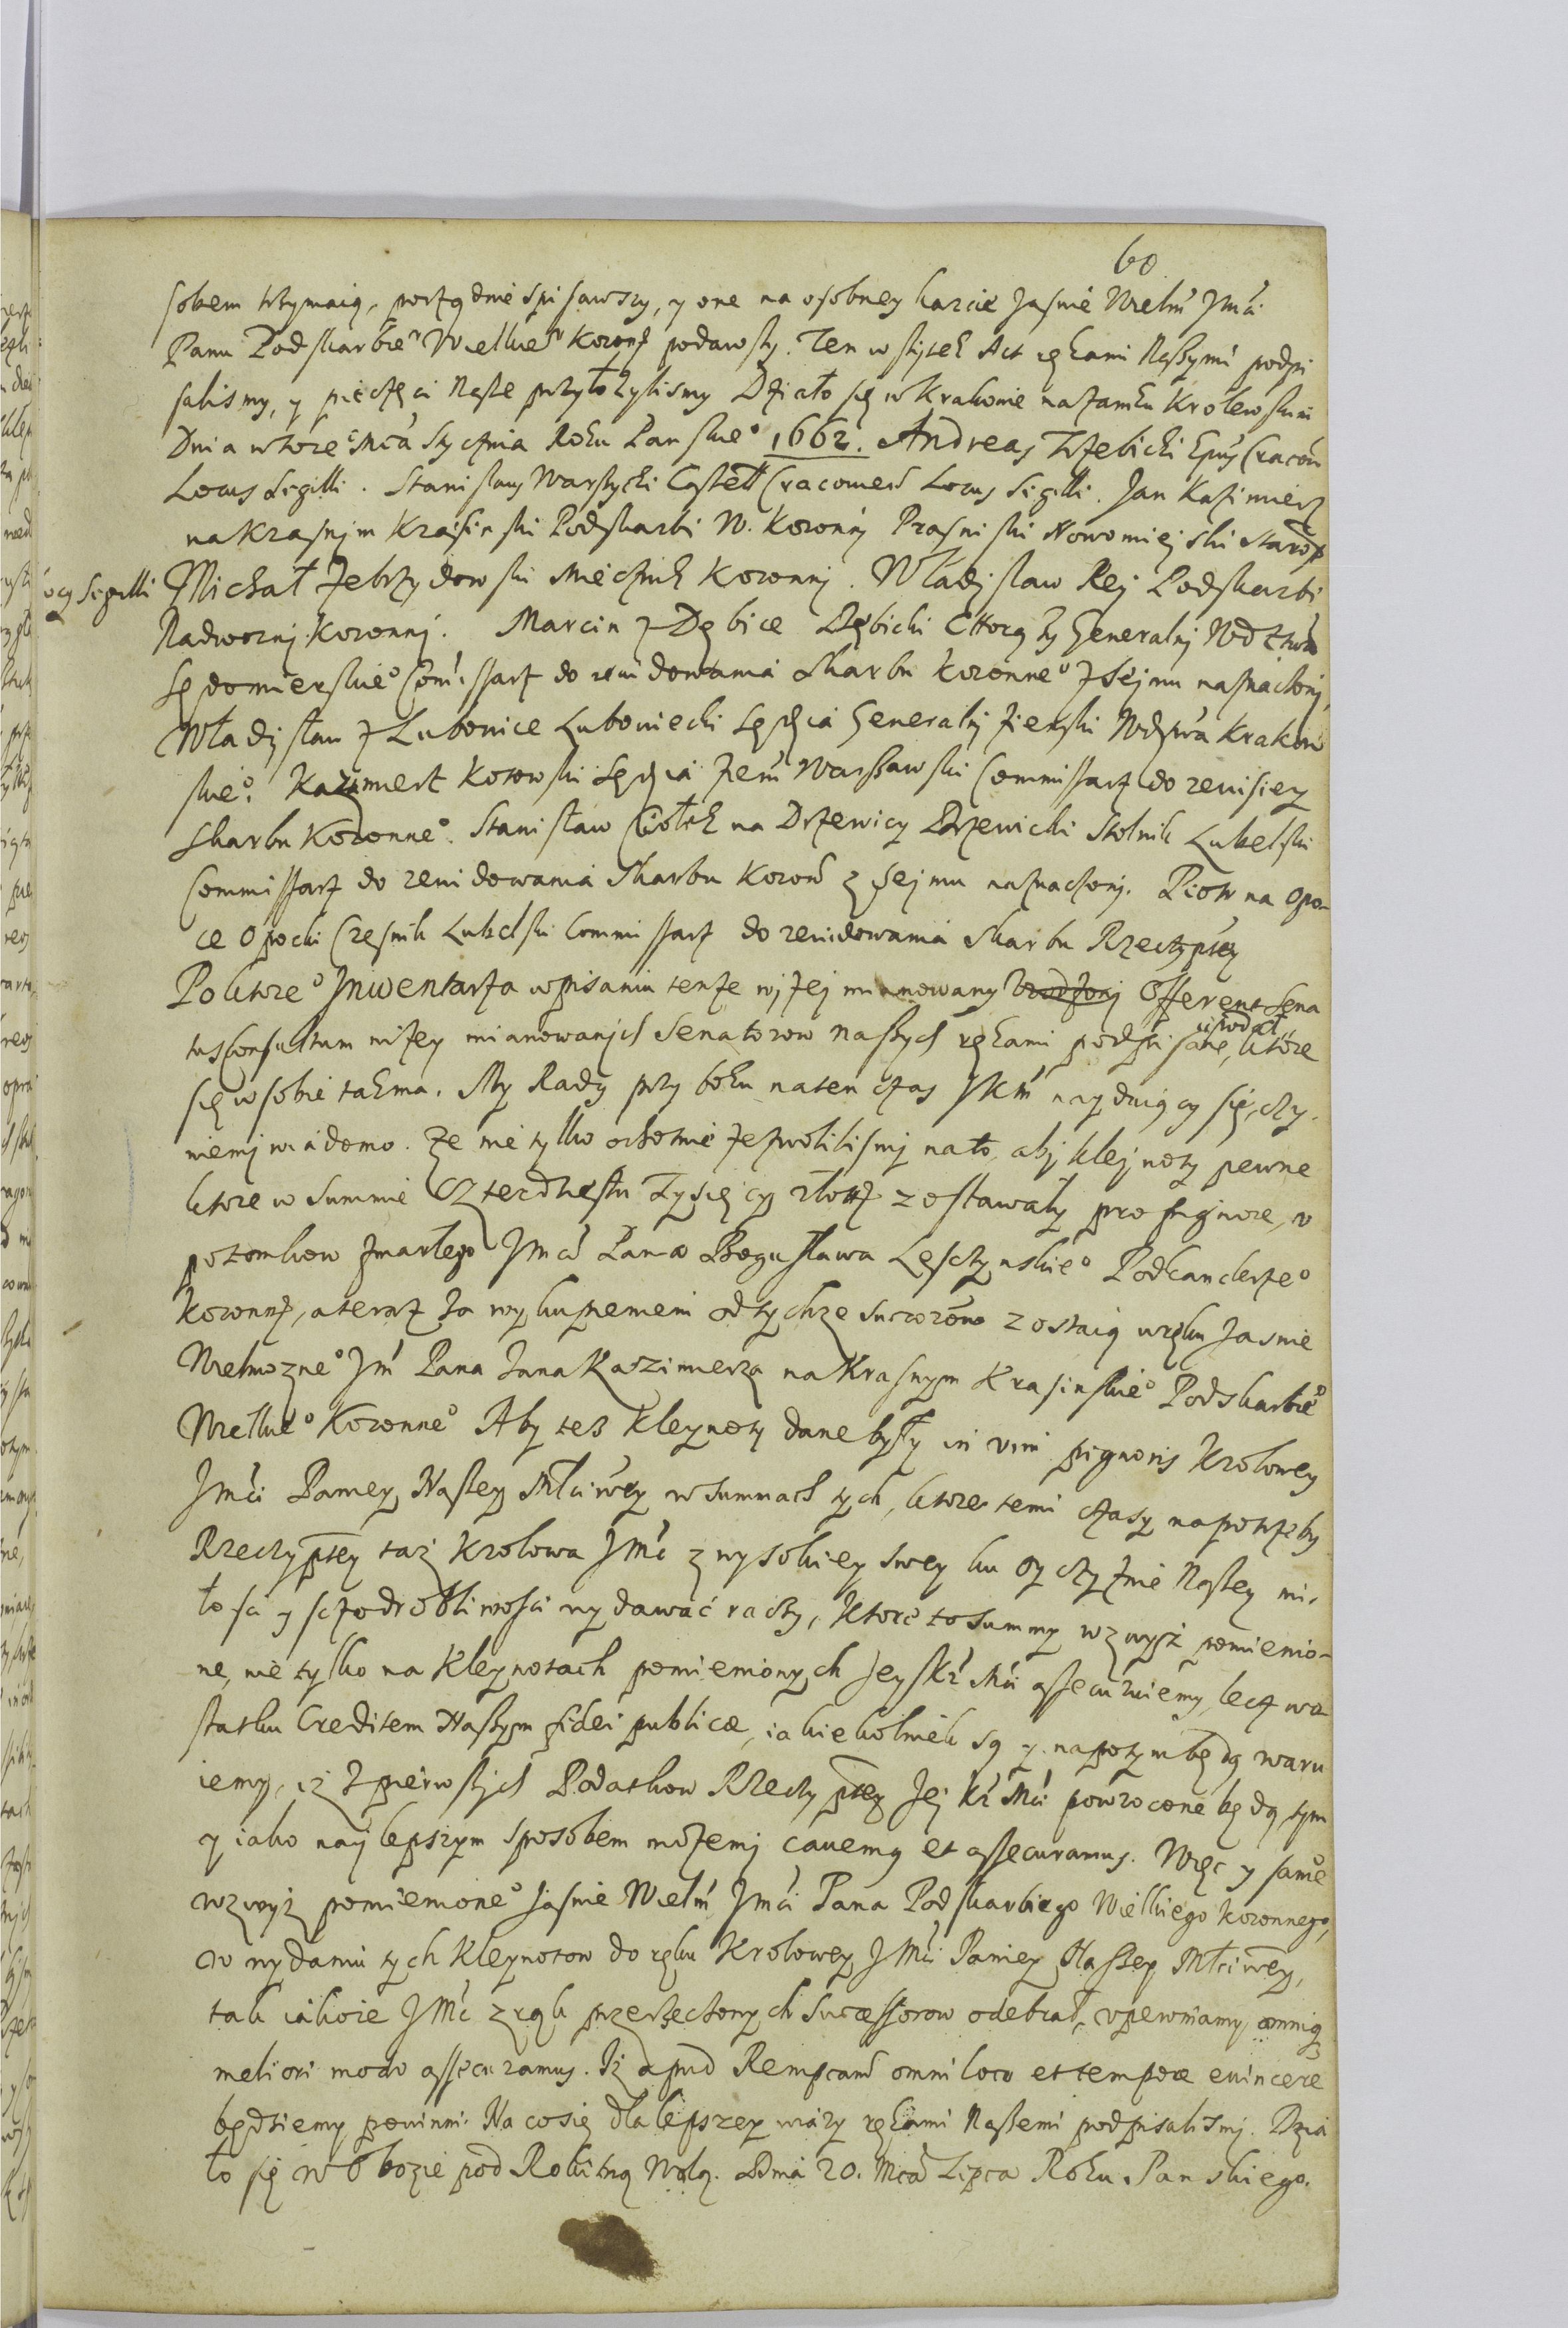 60
sobem trzymaią, porządnie spisawszy, y one na osobney karcie Jasnie Wielm̃ Jmći
Panu Podskarbie° Wielkie° Koronẏ podawszy. Ten wszytek Act rękami Naszymi podpi
salismy, y pieczęci Nasze przyłożylismy Działo się w Krakowie na Zamku Krolewskim
Dnia wtore° Mća Stycznia Roku Panskie° 1662. Andreas Trzebicki Epũs Cracoũ
Locus Sigilli. Stanislaus Warszycki Castell Cracouieñ Locus Sigilli. Jan Kazimierz
na Krasnym Krasinski Podskarbi W. Koronny Prasniski Nowomiejski Starosta
Locus Sigilli Michał Zebrzydowski Miecznik Koronnj. Władisław Rej Podskarbi
Nadwornj Koronnj. Marcin z Dębice Dębicki Chorąży Generalnj Wdztwa
Sędomierskie° Com̃issarz do rewidowania Skarbu Koronne° z Sejmu naznaczonj,
Władisław z Lubowice Lubowiecki Sędzia Generalnj Ziemski Wdztwa Krakow
skie°. Kazimierz Kosowski Sędzia Zem̃ Warszawski Commissarz do rewisiey
Skarbu Koronne°. Stanisław Ciołek na Drzewicy Drzewicki Stolnik Lubelski
Commissarz do rewidowania Skarbu Koroñ z Sejmu naznaczonj. Piotr na Opo-
ce Opocki Czesnik Lubelski Commissarz do rewidowania Skarbu Rzeczyptey
Po ktore° Jnwentarza wpisaniu tenże wjżej mianowany Offerent Sena
tusconsultum niżey mianowanjch Senatorow naszych rękami podpisane, ktore
się w sobie tak ma. My Rady przy boku na ten czas JKM̃ nayduiący się, czy-
niemj wiadomo. Że nie tylko ochotnie zezwolilismj na to, abj klejnoty pewne
ktore w summie Czterdziestu Tysięcy złotẏ zostawały pro pignore, v
potomkow zmarłego Jmći Pana Bogusława Lesczynskie° Podkanclerze°
Koronnẏ, a teraz za wykupieniem od tychże zostaią w ręku Jasnie
Wielmozne° Jm̃ Pana Jana Kazimierza na Krasnym Krasinskie° Podskarbie°
Wielkie° Koronne° Aby tesz kleynoty dane były in vim pignoris Krolowey
Jmći Paniey Naszey Młćiwey w summach tych, ktore temi czasy na potrzeby
Rzeczyptey taż Krolowa Jmć z wysokiey swey ku oyczyznie Naszey mi-
łosci y sczodrobliwosci wydawać raczy, Ktore to summy wzwysz pomienio-
ne, nie tylko na kleynotach pomienionych Jey Kr Mći assecuruiemy, lecz w o
statku Creditem Naszym fidei publicæ, iakiekolwiek są y napotym będą waru
iemy, iż z pierwszych Podatkow Rzeczyptey Jej Kr Mći powrocone będą tym
y iako naylepszym sposobem możemj cauemus et assecuramus. Więc y same°
wzwyż pomienione° Jasnie Wielm̃ Jmći Pana Podskarbiego Wielkiego Koronnego,
w wydaniu tych kleynotow do ręku Krolowey JMći Paniey Naszey Młćiwey,
tak iakoie JMć z rąk przerzeczonych Successorow odebrał, vpewniamy,
meliori modo assecuramus. Iż apud Rempcam̃ omni loco et tempore euincere
będziemy powinni. Na co się dla lepszey wiary rękami Naszemi podpisalismj. Dzia
ło się w Obozie pod Rokitną Wolą. Dnia 20. Mća Lipca Roku Panskiego.